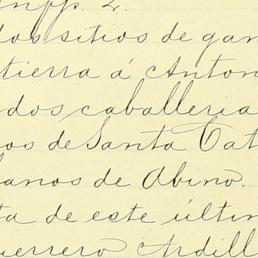 dos sitios de gan
tierra á Anton
dos caballeria
os de Santa Cat
anos de Abino.
ta de este últim
uerrero Ardill